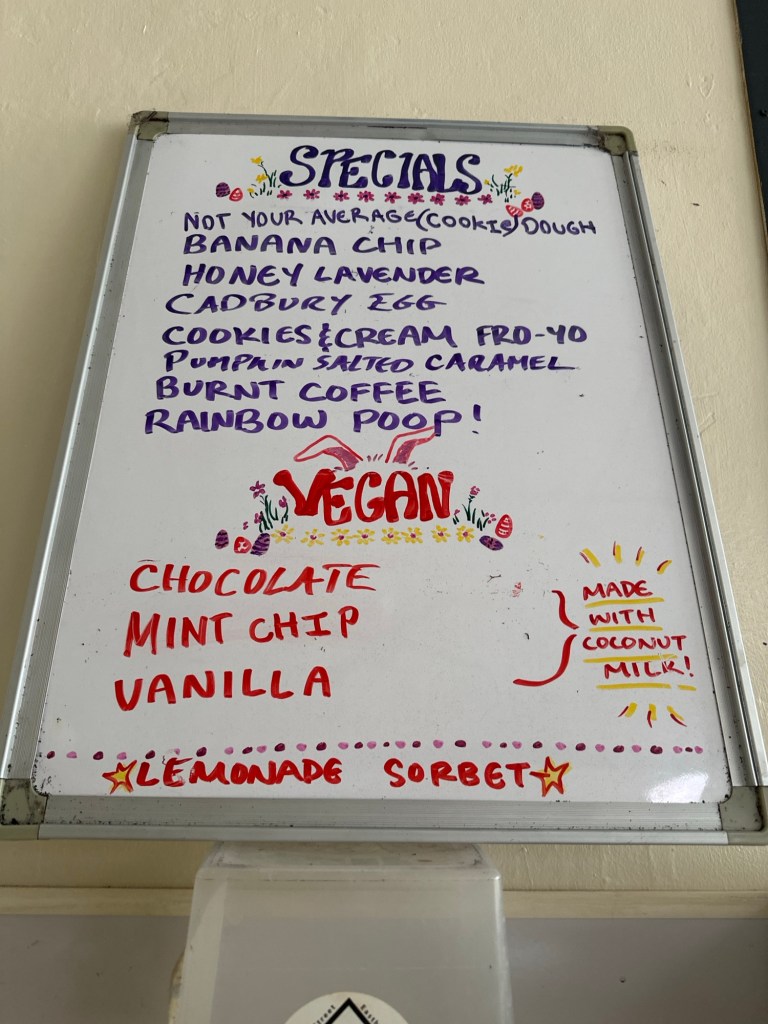 SPECIALS
NOT YOUR AVERAGE (COOKIE) DOUGH
BANANA CHIP
HONEY LAVENDER
CADBURY EGG
COOKIES & CREAM FRO-YO
PUMPKIN SALTED CARAMEL
BURNT COFFEE
RAINBOW POOP!
VEGAN
CHOCOLATE
MINT CHIP
VANILLA
MADE
WITH
COCONUT
MILK!
LEMONADE SORBET